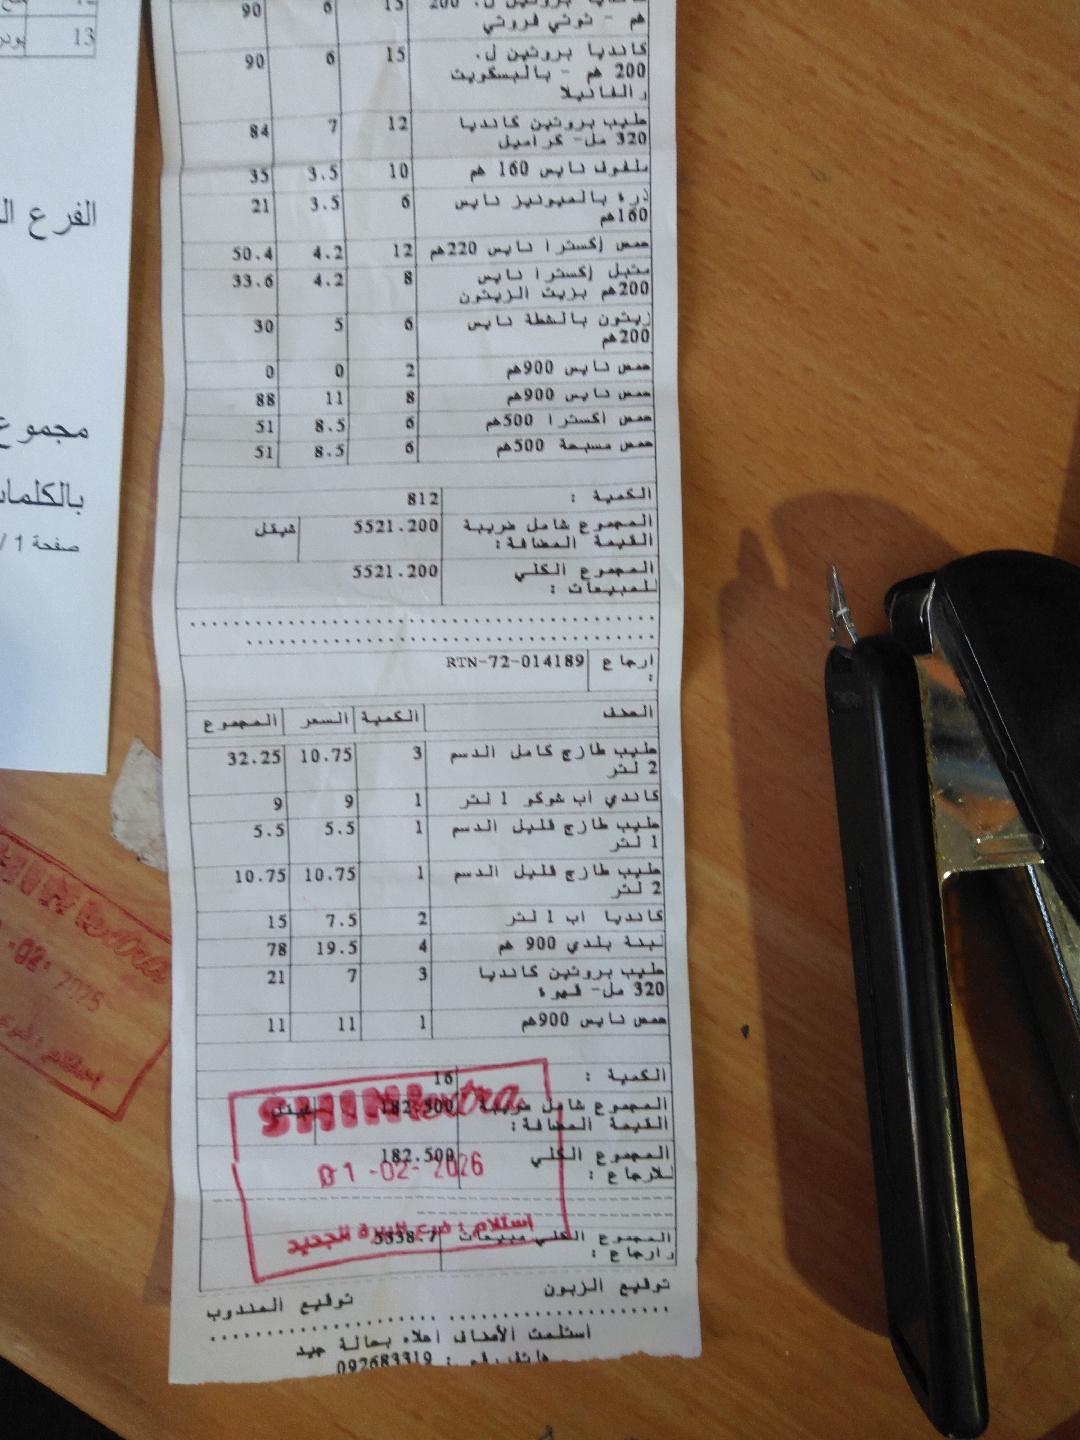 13
الفرع ال
مجموع
بالكلمات
صفحة 1 /
هم - توتي فروتي 15 6 90
كانديا بروتين ل.
200 هم - بالبسكويت 15 6 90
والفانيلا
حليب بروتين كانديا 12 7 84
320 مل- كراميل
ملفوف نايس 160 هم 10 3.5 35
ذره بالميونيز نايس 6 3.5 21
160هم
حمص إكسترا نايس 220هم 12 4.2 50.4
متبل إكسترا نايس 8 4.2 33.6
200هم بزيت الزيتون
زيتون بالشطة نايس 6 5 30
200هم
حمص نايس 900هم 2 0 0
حمص نايس 900هم 8 11 88
حمص اكسترا 500هم 6 8.5 51
حمص مسبحة 500هم 6 8.5 51
الكمية : 812
المجموع شامل ضريبة 5521.200 شيقل
القيمة المضافة:
المجموع الكلي 5521.200
للمبيعات :
ارجاع RTN-72-014189
:
الصنف الكمية السعر المجموع
حليب طازج كامل الدسم 3 10.75 32.25
2 لتر
كاندي اب شوكو 1 لتر 1 9 9
حليب طازج قليل الدسم 1 5.5 5.5
1 لتر
حليب طازج قليل الدسم 1 10.75 10.75
2 لتر
كانديا اب 1 لتر 2 7.5 15
لبنة بلدي 900 هم 4 19.5 78
حليب بروتين كانديا 3 7 21
320 مل- قهوة
حمص نايس 900هم 1 11 11
الكمية : 16
المجموع شامل ضريبة 182.500 شيقل
القيمة المضافة:
المجموع الكلي 182.500
للارجاع :
SHINI extra
01-02-2026
استلام : فرع البيرة الجديد
المجموع الكلي مبيعات 5338.7
وارجاع :
توقيع الزبون توقيع المندوب
استلمت الأصناف اعلاه بحالة جيد
هاتف رقم : 092683319